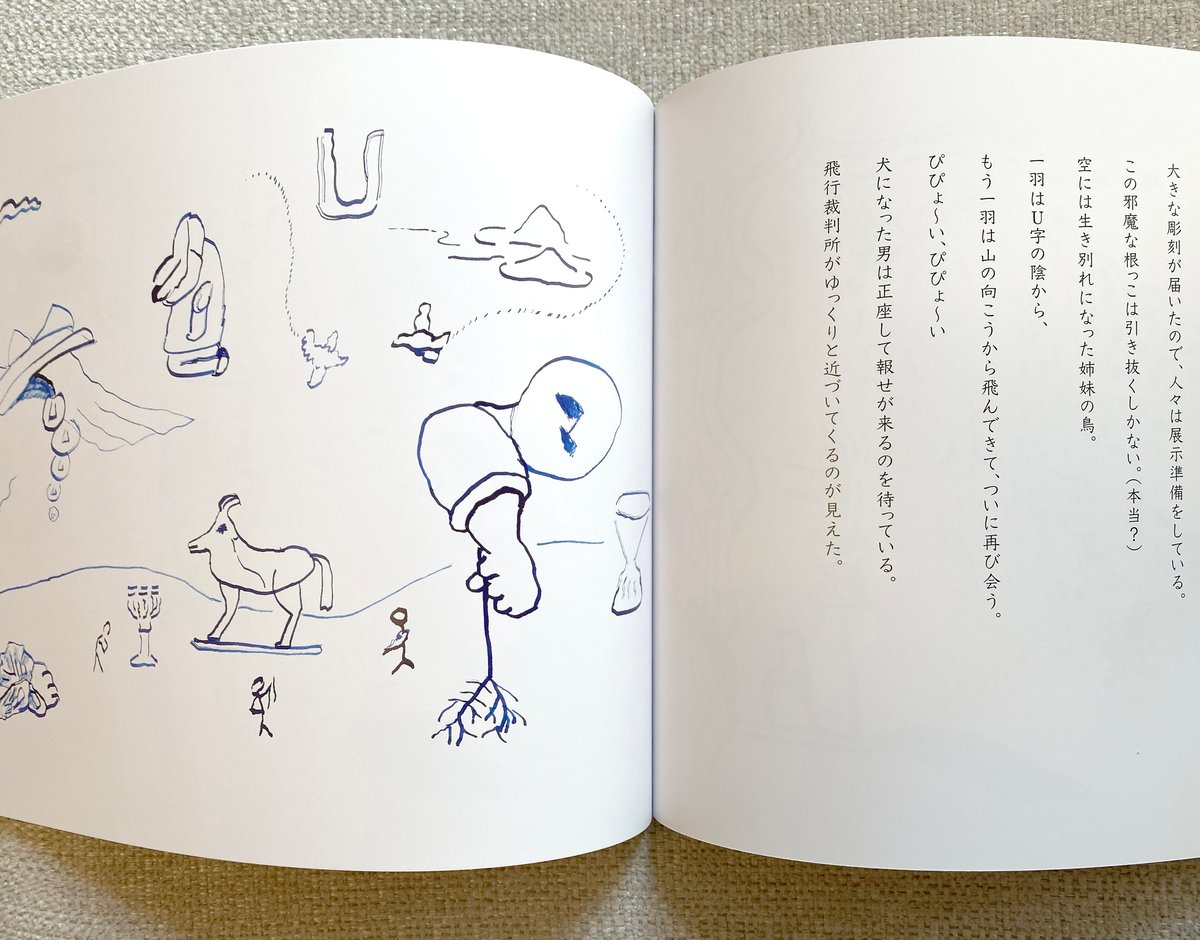 大きな彫刻が届いたので、人々は展示準備をしている。
この邪魔な根っこは引き抜くしかない。(本当？)
空には生き別れになった姉妹の鳥。
一羽はU字の陰から、
もう一羽は山の向こうから飛んできて、ついに再び会う。
ぴぴょ〜い、ぴぴょ〜い
犬になった男は正座して報せが来るのを待っている。
飛行裁判所がゆっくりと近づいてくるのが見えた。
U